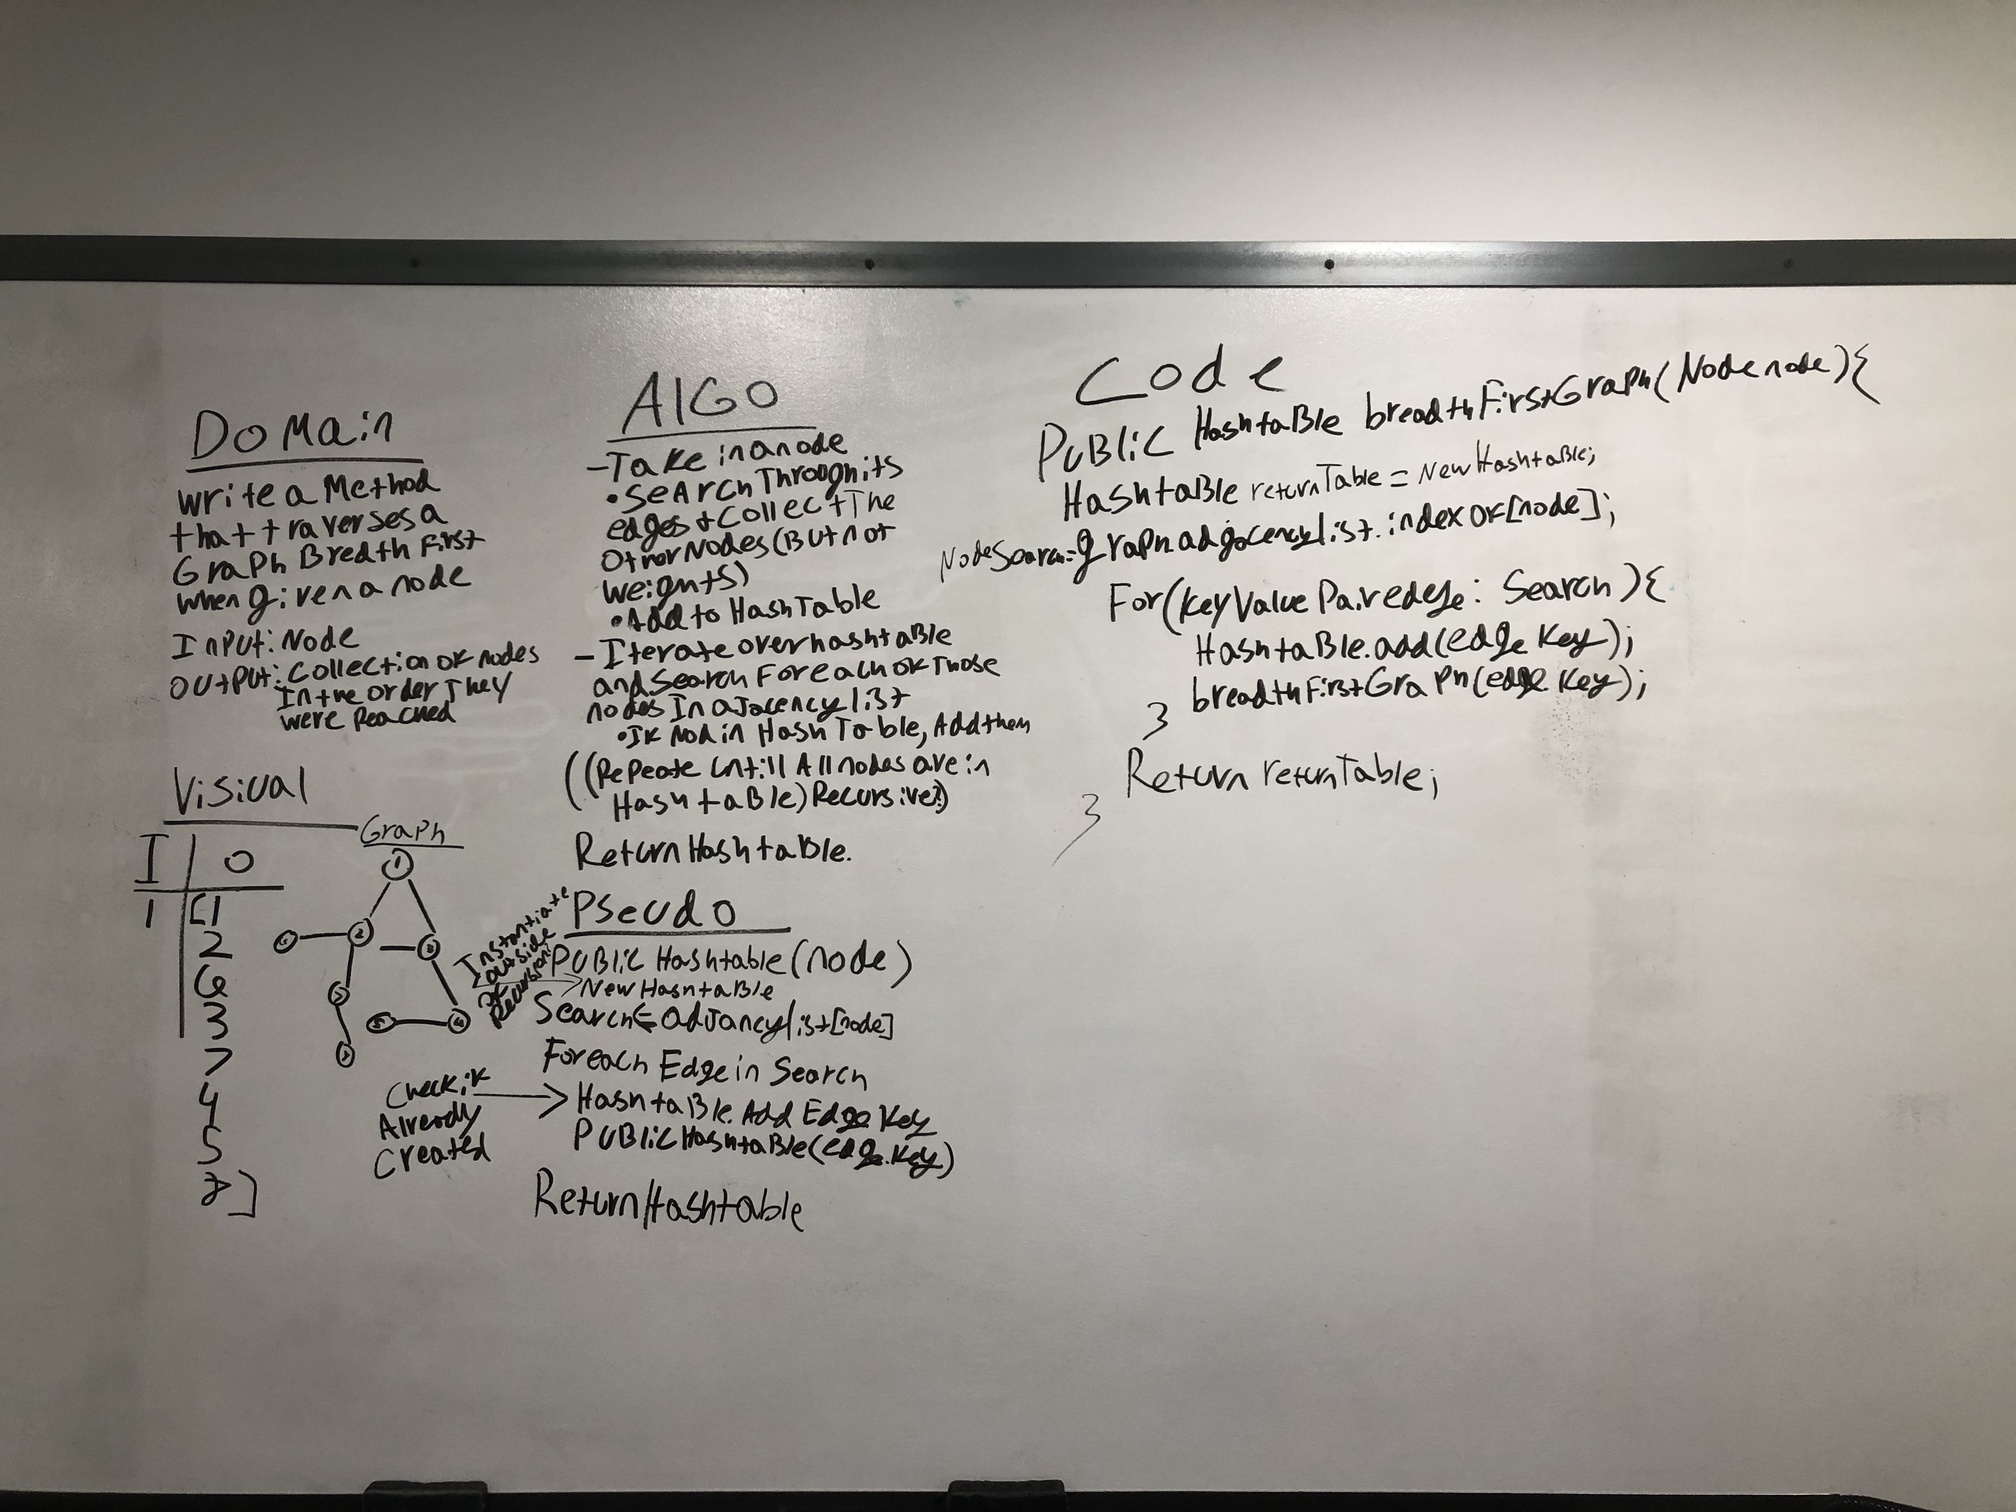 Domain
write a Method
that traverses a
Graph Bredth First
when given a node
Input: Node
Output: Collection of nodes
In the order They
were Reached
Visival
I | O
1 | [1
2
6
3
7
4
5
8]
Graph
1
2
3
4
AlGO
- Take in a node
• Search Through its
edges & Collect The
Other Nodes (But not
Weights)
• Add to Hash Table
- Iterate over hashtable
and Search For each of Those
nodes In ajacency list
• If Not in Hash Table, Add them
((Repeate Untill All nodes are in
Hash table) Recursive?)
Return Hashtable.
Pseudo
Instantiate
outside
of
Recursion?
Public Hashtable(node)
New Hashtable
Search = adjancylist[node]
Foreach Edge in Search
Check if
Already
Created
Hashtable.Add Edge Key
Public Hashtable(edge.Key)
Return Hashtable
Code
Public Hashtable breadthFirstGraph(Node node){
Hashtable returnTable = New Hashtable;
Node Search = graph adjocencylist.indexOf[node];
For(KeyValue Pair edge: Search){
Hashtable.add(edge Key);
breadthFirstGraph(edge Key);
}
Return returnTable;
}